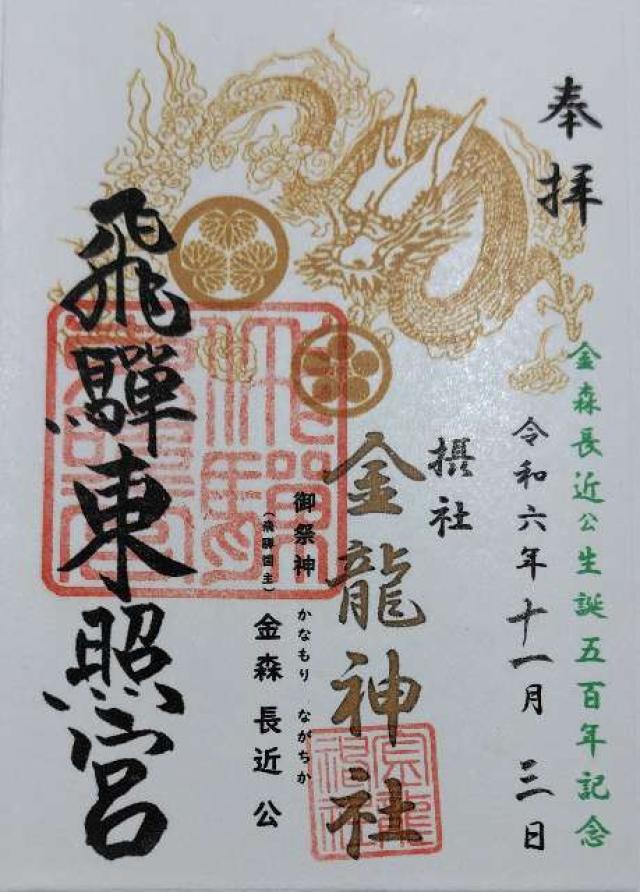 奉拝
金森長近公生誕五百年記念
令和六年十一月三日
摂社
金龍神社
御祭神
（飛騨国主）
かなもり ながちか
金森長近公
飛驒東照宮